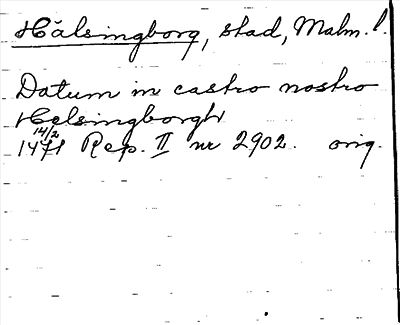 Hälsingborg, stad, Malm. l.
Datum in castro nostro
Helsingborgh
14/2
1471 Rep. II nr 2902. orig.